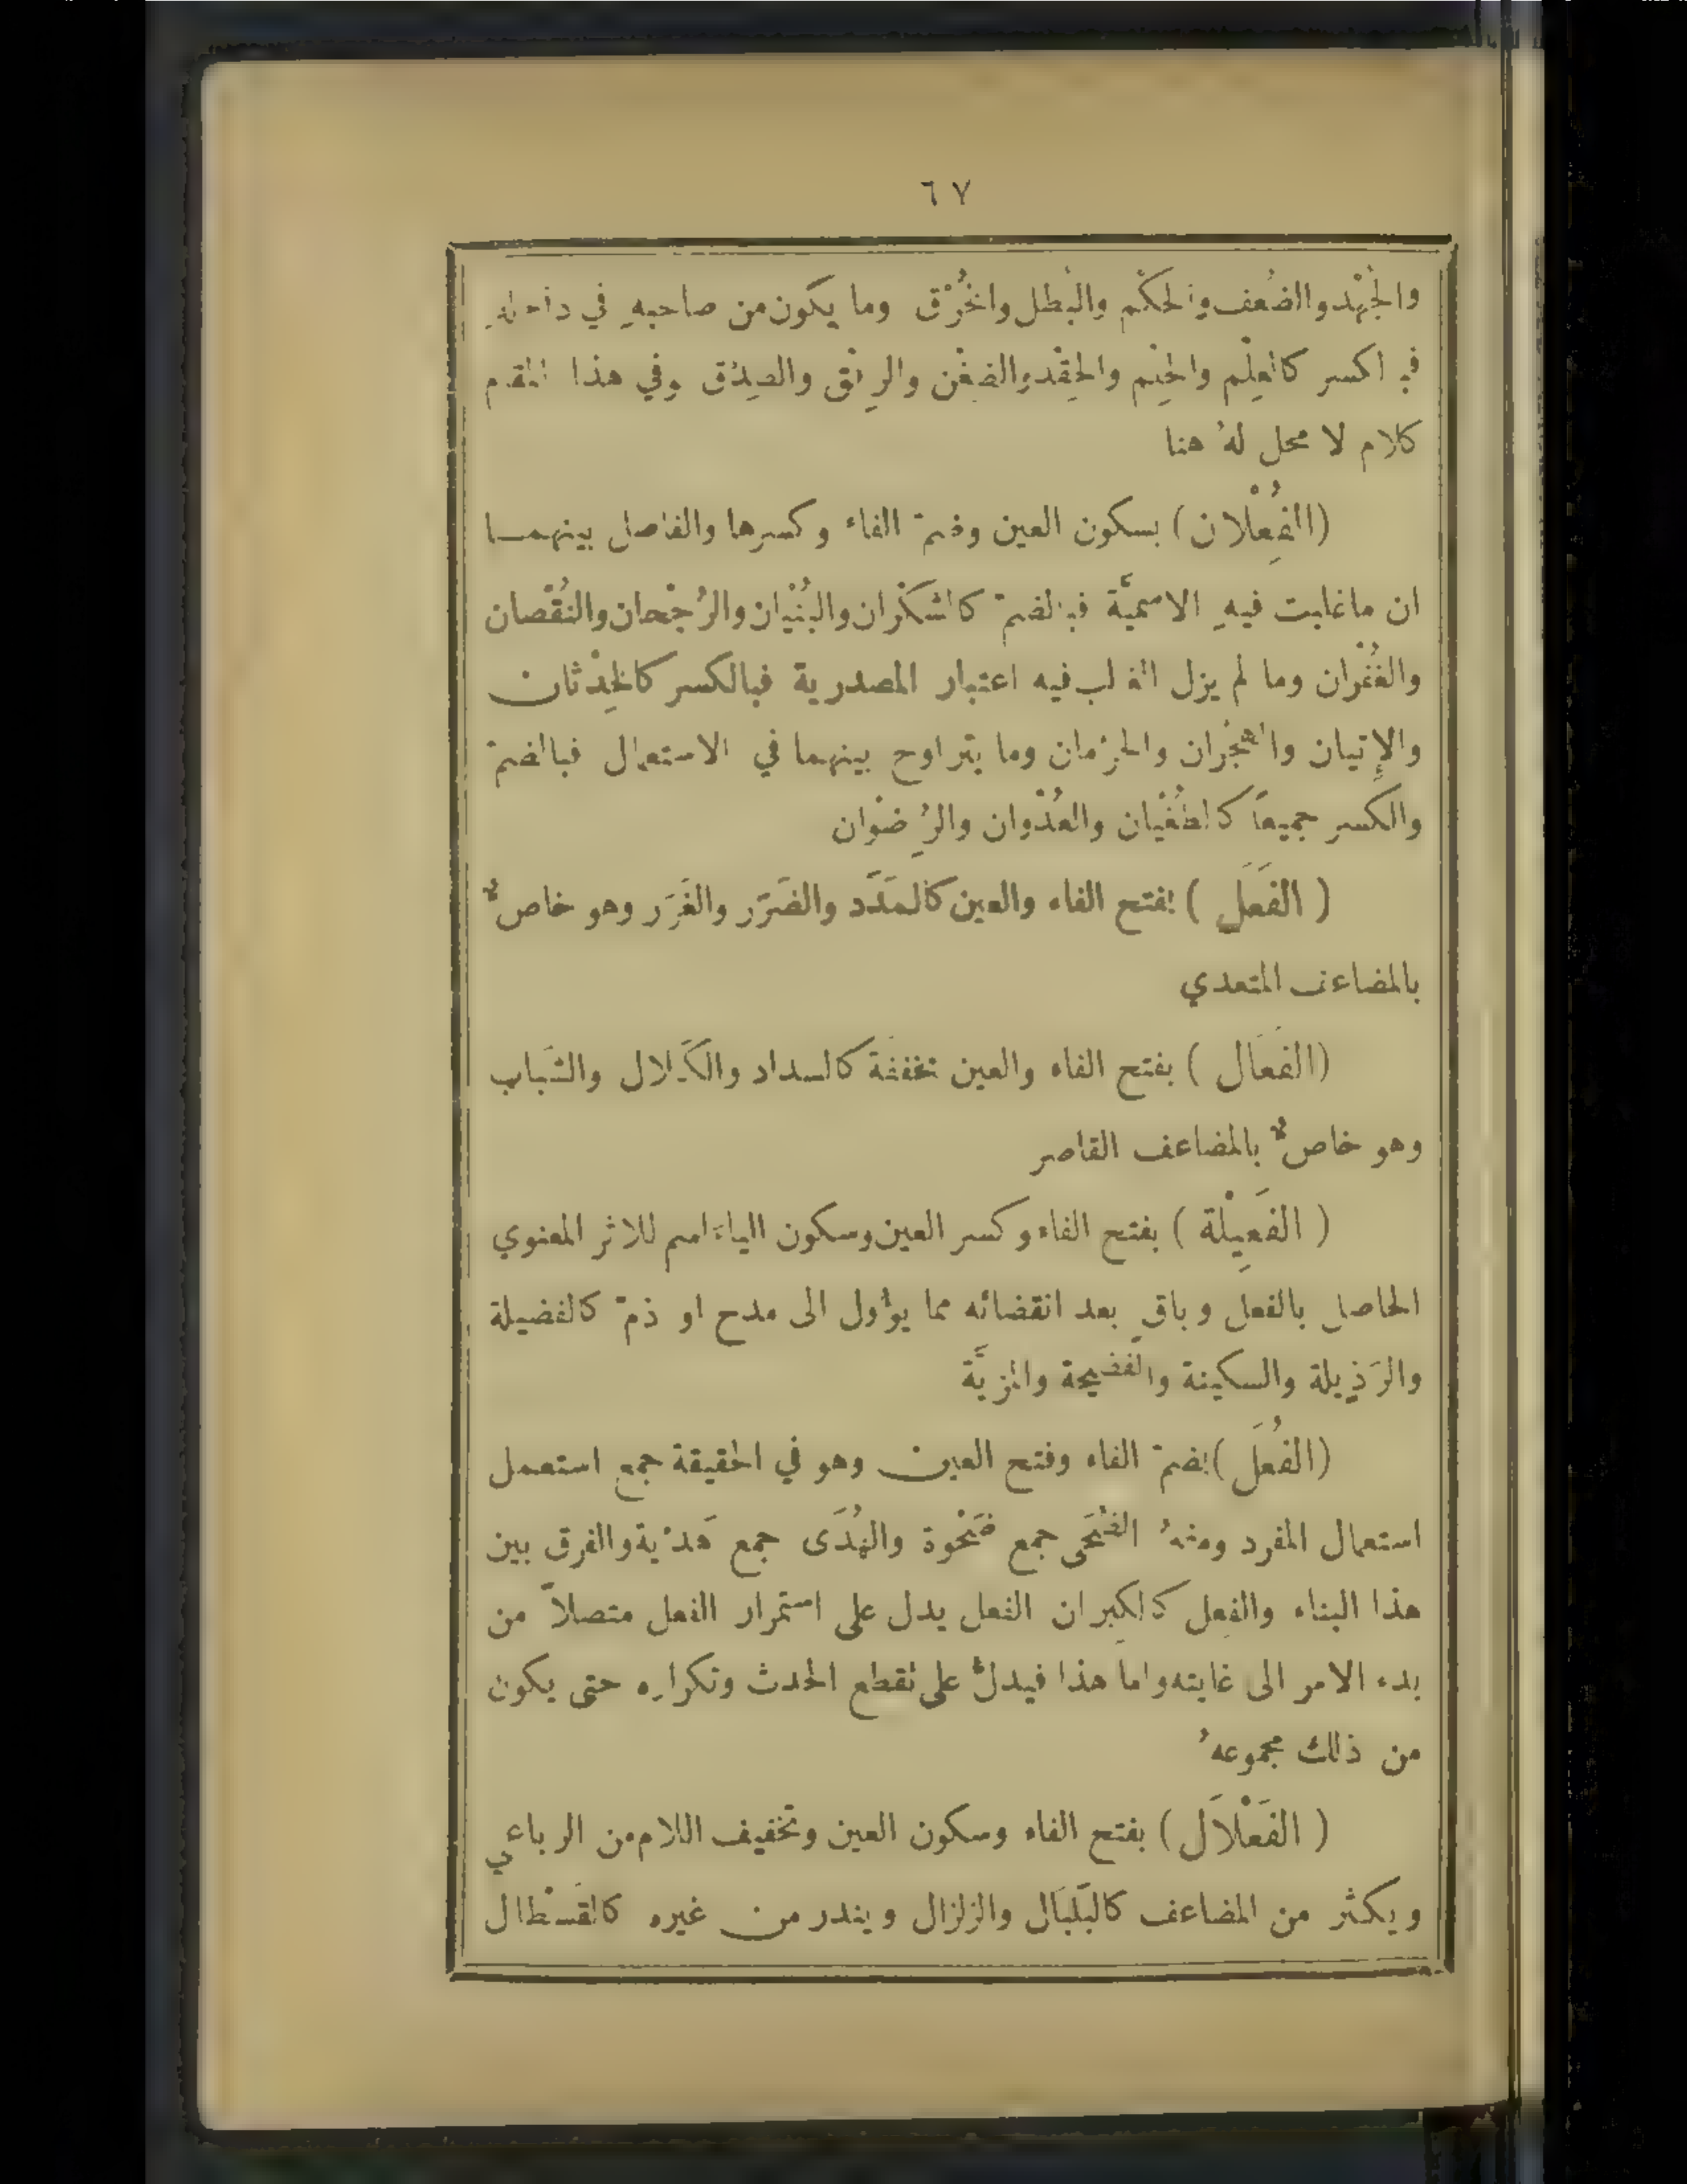 ٦٧
والجُهْد والضُعف والحكْم والبُطل والخُرْق وما يكون من صاحبهِ في داخلهِ
فبالكسر كالعِلْم والحِلْم والحِقْد والضِغْن والرِفْق والصِدْق وفي هذا المقام
كلام لا محل لهُ هنا
(الفُِعْلان) بسكون العين وضمّ الفاء وكسرها والفاصل بينهما
ان ما غلبت فيهِ الاسميَّة فبالضمّ كالشكْران والبُنْيان والرُجْحان والنُقْصان
والغُفْران وما لم يزل الغالب فيه اعتبار المصدرية فبالكسر كالحِدْثان
والإِتيان والهجْران والحرْمان وما يتراوح بينهما في الاستعمال فبالضمّ
والكسر جميعاً كالطُغْيان والعُدْوان والرُِضْوان
( الفَعَل ) بفتح الفاء والعين كالمَدَد والضَرَر والغَرَر وهو خاصٌّ
بالمضاعف المتعدي
(الفَعَال ) بفتح الفاء والعين مخففَة كالسداد والكَلال والشَباب
وهو خاصٌّ بالمضاعف القاصر
( الفَعِيْلة ) بفتح الفاء وكسر العين وسكون الياء اسم للاثر المعنوي
الحاصل بالفعل وباقٍ بعد انقضائه مما يؤول الى مدح او ذمّ كالفضيلة
والرَذِيلة والسكينة والفضيحة والمزيَّة
(الفُعَل ) بضمّ الفاء وفتح العين وهو في الحقيقة جمع استعمل
استعمال المفرد ومنهُ الضُحَى جمع ضَحْوة والهُدَى جمع هَدْية والفرق بين
هذا البناء والفِعل كالكِبر ان الفعل يدل على استمرار الفعل متصلاً من
بدء الامر الى غايته واما هذا فيدلُّ على تقطع الحدث وتكراره حتى يكون
من ذلك مجموعهُ
( الفَعْلاَل ) بفتح الفاء وسكون العين وتخفيف اللام من الرباعي
ويكثر من المضاعف كالبَلبَال والزلزال ويندر من غيره كالقَسْطال